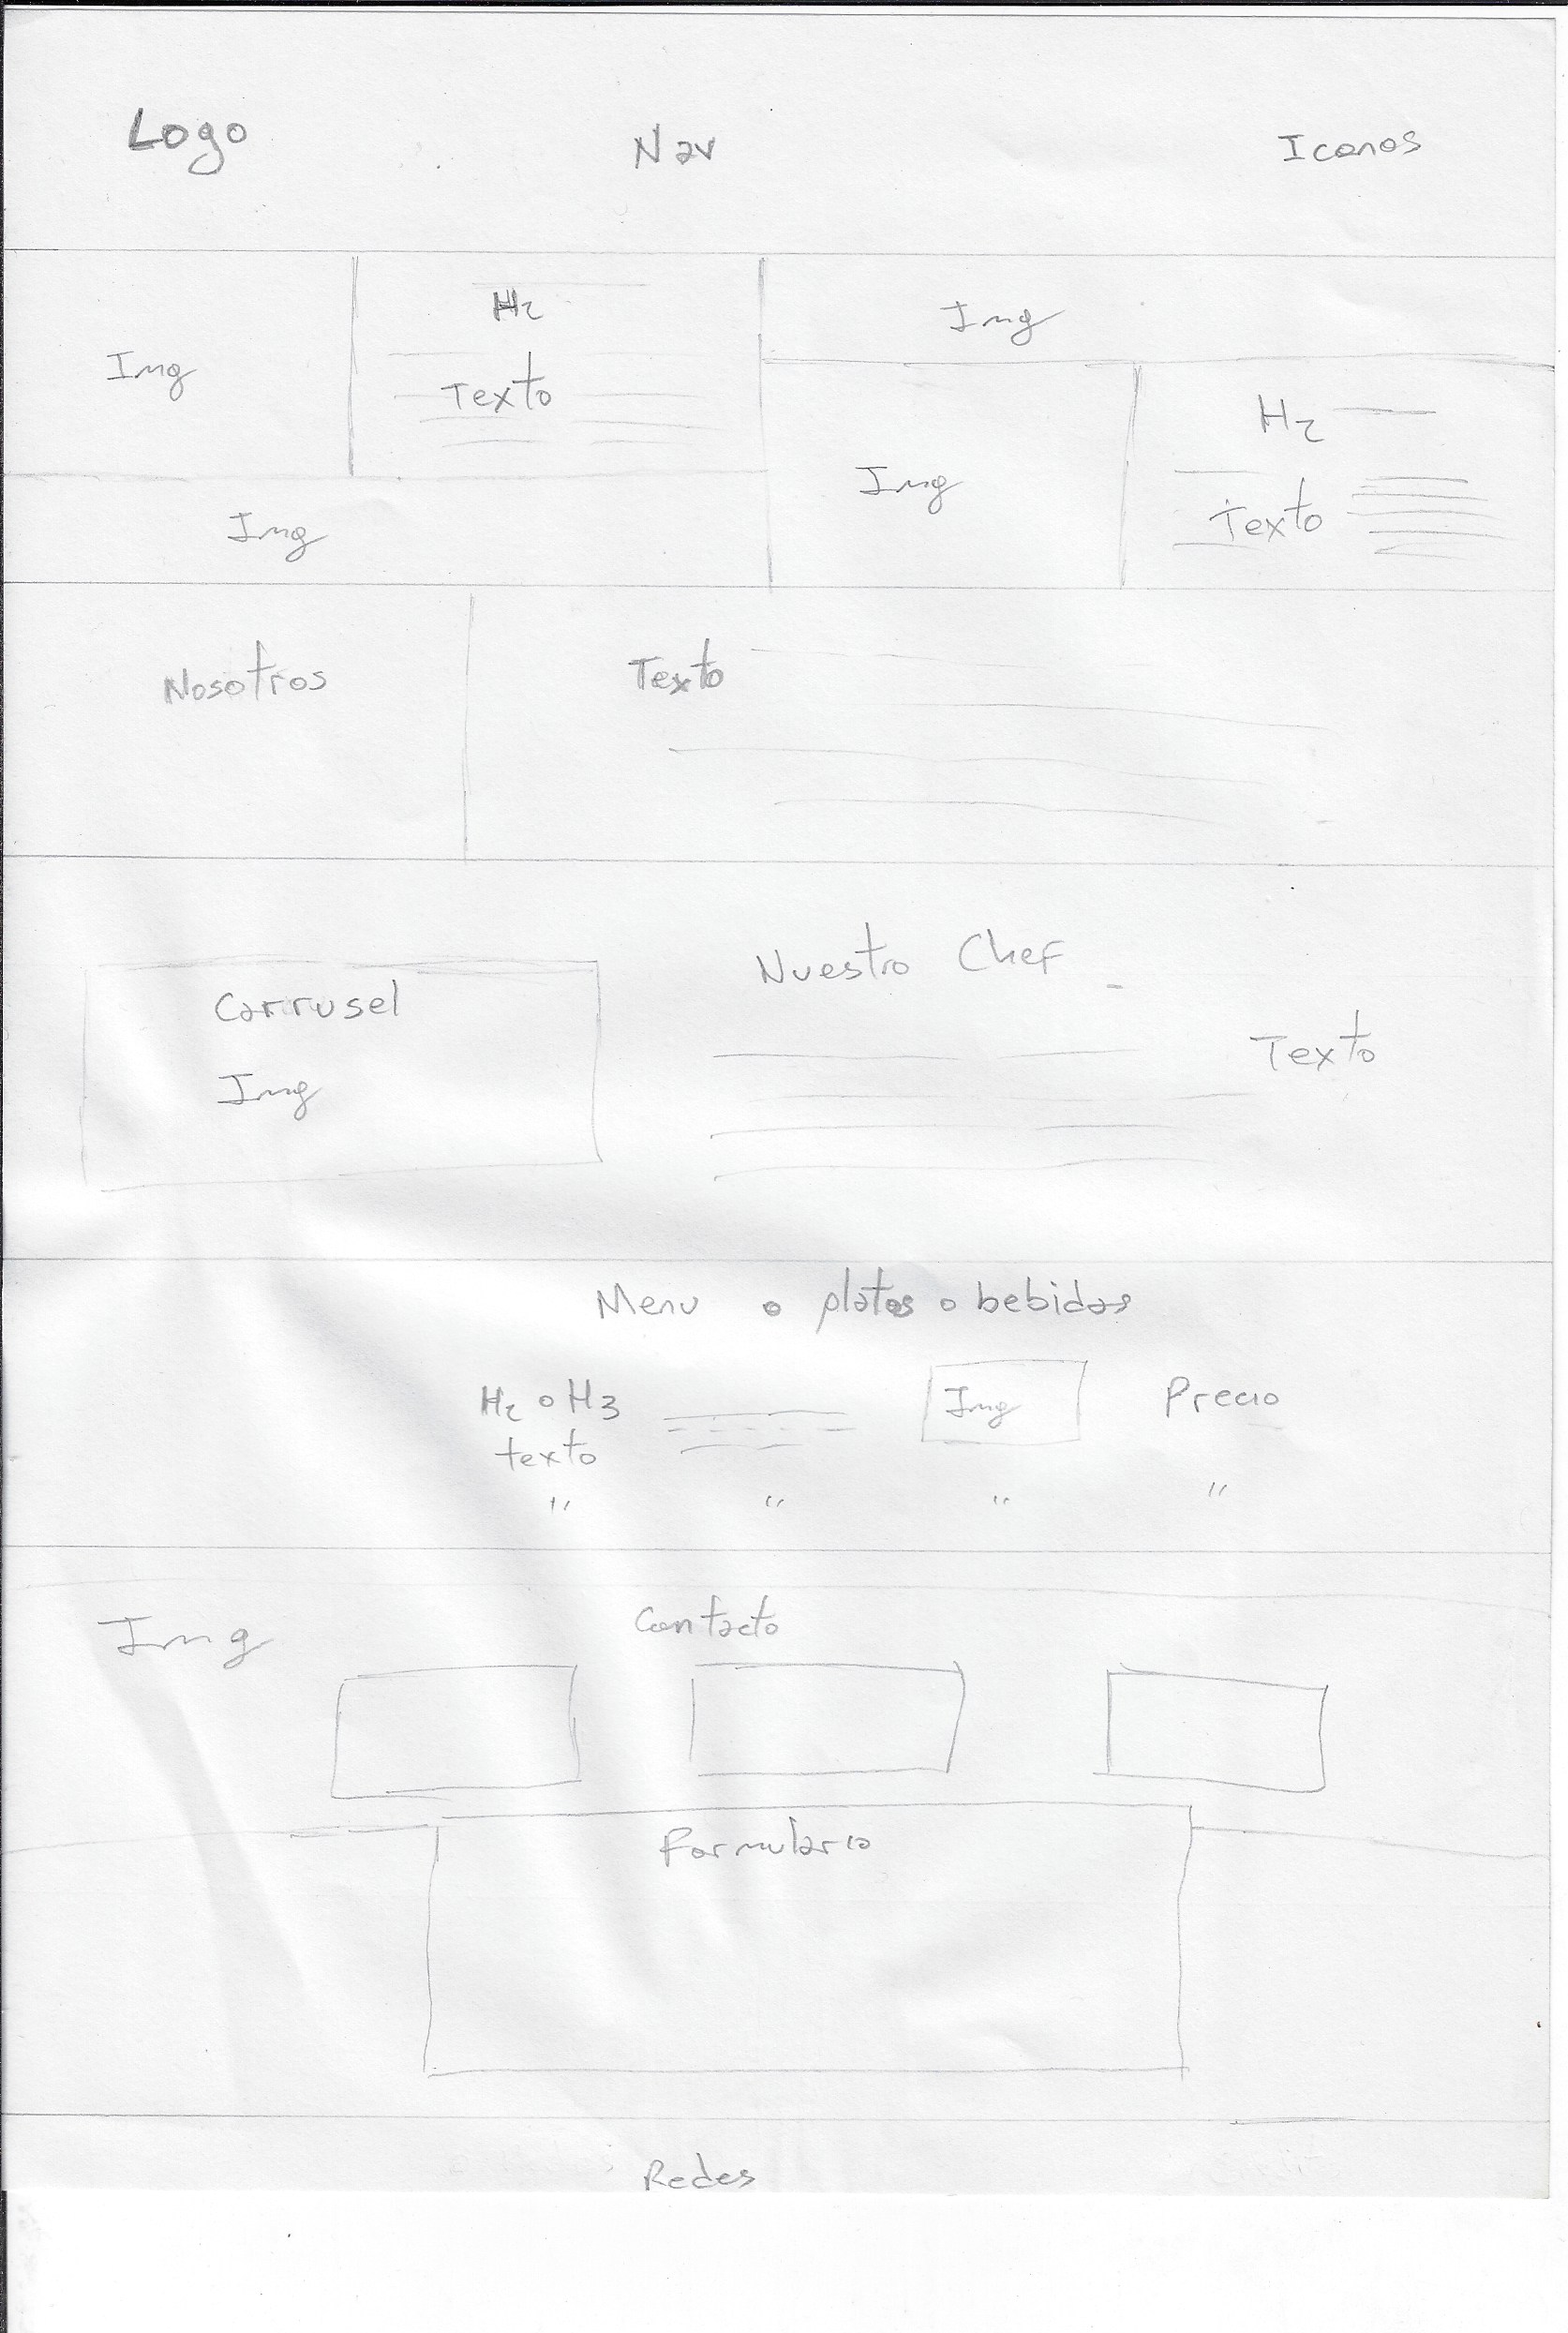 Logo Nav Iconos
Img
H2
Texto
Img
Img
Img
H2
Texto
Nosotros
Texto
Carrusel
Img
Nuestro Chef
Texto
Menu o platos o bebidas
H2 o H3 Img Precio
texto
" " " "
Img
Contacto
Formulario
Redes